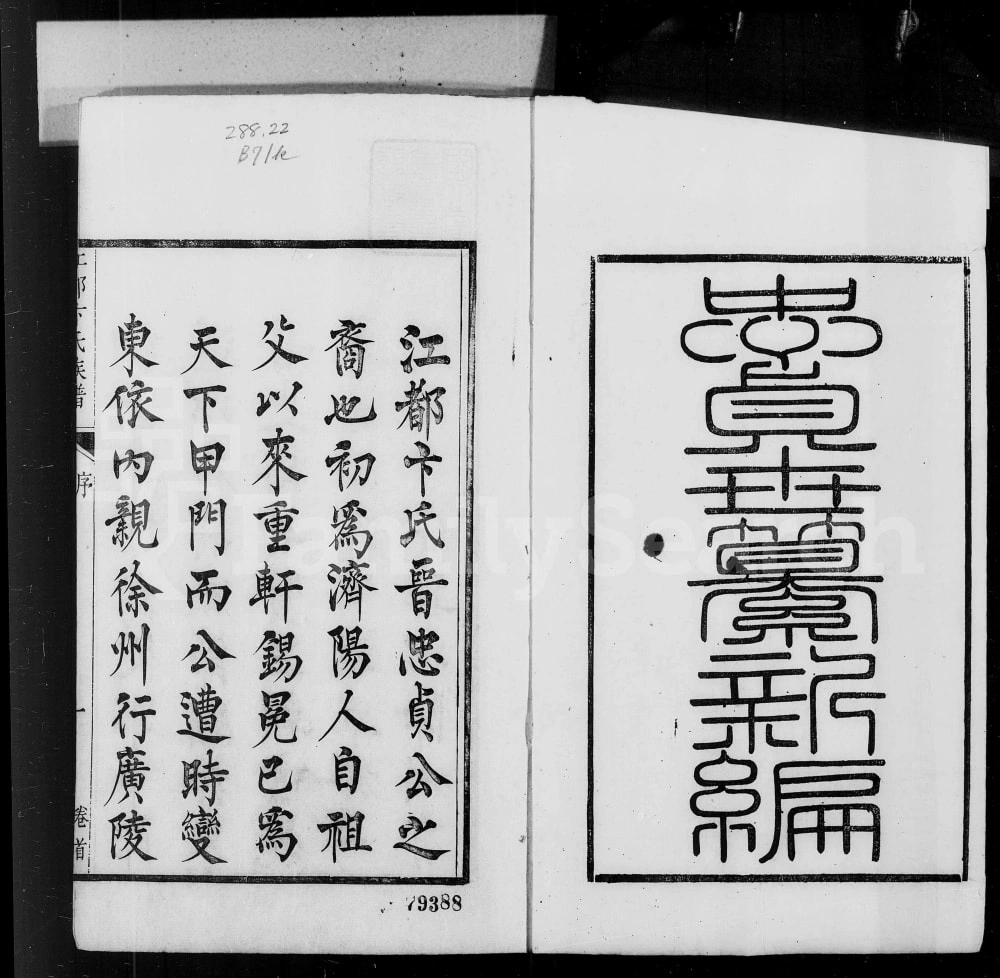 忠貞世纂新編
江都卞氏晉忠貞公之
裔也初爲濟陽人自祖
父以來重軒錫冕已爲
天下甲門而公遭時變
東依內親徐州行廣陵
江都卞氏族譜
序
一
卷首
288.22
79388
FamilySearch